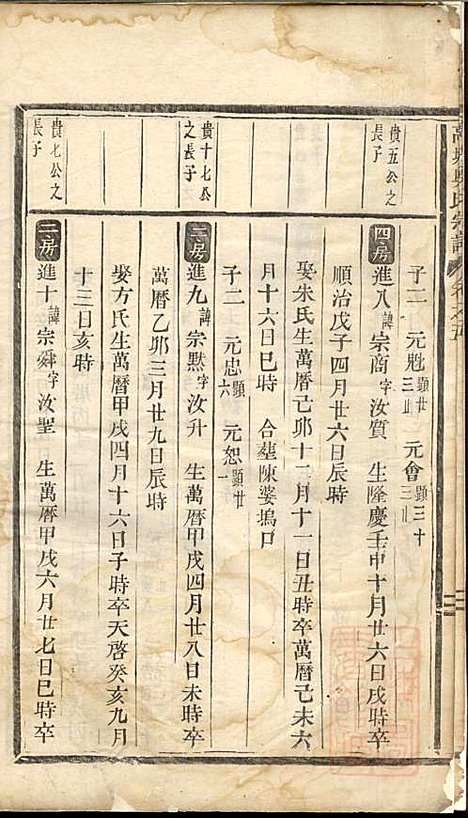 子二 元兙顯廿三 元會顯三十三
貴五公之長子
四房 進八諱宗商字汝質 生隆慶壬申十月廿六日戌時卒
順治戊子四月廿六日辰時
娶朱氏生萬曆己卯十二月十一日丑時卒萬曆己未六
月十六日巳時 合塟陳婆塢口
子二 元忠顯六 元恕顯廿一
貴十七公之長子
三房 進九諱宗默字汝升 生萬曆甲戌四月廿八日未時卒
萬曆乙卯三月廿九日辰時
娶方氏生萬曆甲戌四月十六日子時卒天啓癸亥九月
十三日亥時
貴七公之長子
二房 進十諱宗舜字汝聖 生萬曆甲戌六月廿七日巳時卒